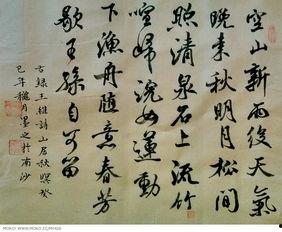 空山新雨後天氣
晚来秋明月松間
照清泉石上流竹
喧歸浣女蓮動
下漁舟隨意春芳
歇王孫自可留
古録王維詩山居秋暝癸
巳年穐月墨之於南沙
MOKO! WWW.MOKO.CC/